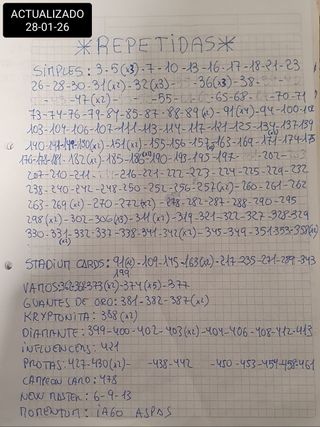 ACTUALIZADO
28-01-26
*REPETIDAS*
SIMPLES: 3-5(x3)-7-10-13-16-17-18-21-23
26-28-30-31(x2)-32(x3) -36(x3)-38-
-47(x2)- -55- -65-68- -70-71
73-74-76-79-84-85-87-88-89(x2)-91(x4)-94-100-101
103-104-106-107-111-113-114-117-121-125-134-137-139
140- -151(x2)-155-156-157-163-169-171-174-175
181-182(x2)-185-186-190-193-195-197- -202-203
207-210-211- -216-221-222-223-224-225-229-232
238-240-242-248-250-252-256-257(x2)-260-261-262
263-269(x2)-270-272(x2)-278-282-287-288-290-295
298(x2)-302-306(x3)-311(x2)-319-321-322-327-328-329
330-331(x2)-332-337-338-341-342(x2)-345-349-351-353-358(x2)
STADIUM CARDS: 91(x2)-109-145-163(x2)-217-235-271-289-343
199
VAMOS: 362-368-373(x2)-374(x5)-377
GUANTES DE ORO: 381-382-387(x2)
KRYPTONITA: 388(x2)
DIAMANTE: 399-400-402-403(x2)-404-406-408-412-413
INFLUENCERS: 421
PROTAS: 427-430(x2)- -438-442 -450-453-454-458-461
CAMPEON CARD: 478
NEW MASTER: 6-9-13
MOMENTUM: IAGO ASPAS